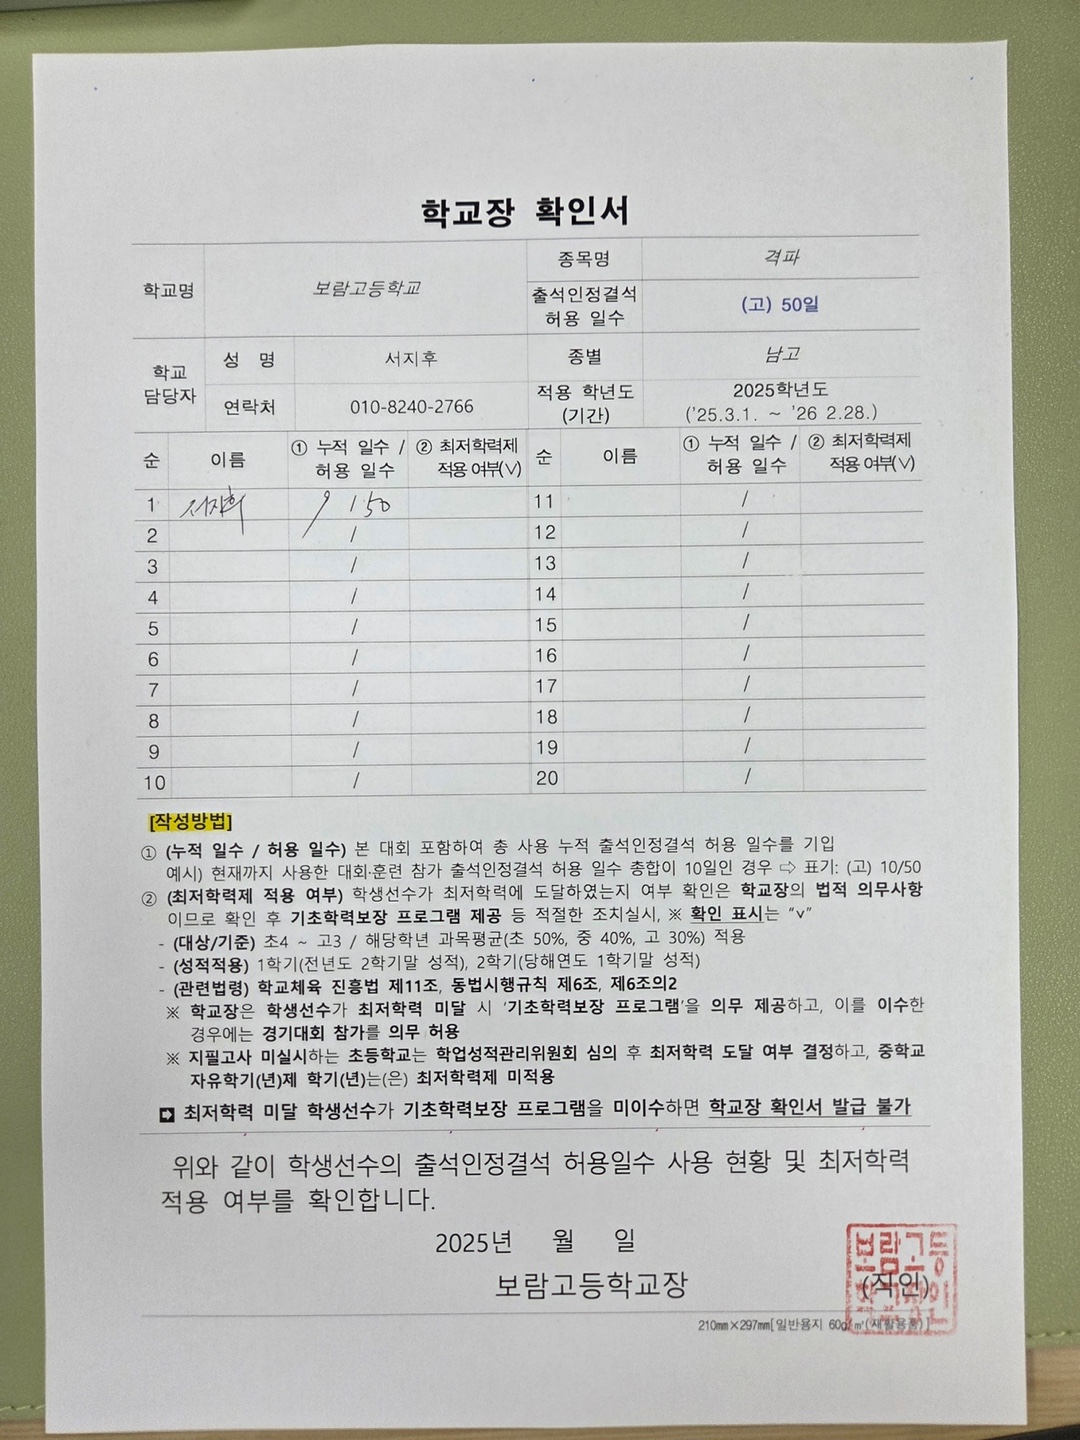 학교장 확인서
학교명 보람고등학교 종목명 격파
출석인정결석 허용 일수 (고) 50일
학교 담당자 성 명 서지후 종별 남고
연락처 010-8240-2766 적용 학년도 (기간) 2025학년도 ('25.3.1. ~ '26 2.28.)
순 이름 ① 누적 일수 / 허용 일수 ② 최저학력제 적용 여부(∨) 순 이름 ① 누적 일수 / 허용 일수 ② 최저학력제 적용 여부(∨)
1 9 / 50 11 /
2 / 12 /
3 / 13 /
4 / 14 /
5 / 15 /
6 / 16 /
7 / 17 /
8 / 18 /
9 / 19 /
10 / 20 /
[작성방법]
① (누적 일수 / 허용 일수) 본 대회 포함하여 총 사용 누적 출석인정결석 허용 일수를 기입
예시) 현재까지 사용한 대회·훈련 참가 출석인정결석 허용 일수 총합이 10일인 경우 ⇨ 표기: (고) 10/50
② (최저학력제 적용 여부) 학생선수가 최저학력에 도달하였는지 여부 확인은 학교장의 법적 의무사항
이므로 확인 후 기초학력보장 프로그램 제공 등 적절한 조치실시, ※ 확인 표시는 "v"
- (대상/기준) 초4 ~ 고3 / 해당학년 과목평균(초 50%, 중 40%, 고 30%) 적용
- (성적적용) 1학기(전년도 2학기말 성적), 2학기(당해연도 1학기말 성적)
- (관련법령) 학교체육 진흥법 제11조, 동법시행규칙 제6조, 제6조의2
※ 학교장은 학생선수가 최저학력 미달 시 '기초학력보장 프로그램'을 의무 제공하고, 이를 이수한
경우에는 경기대회 참가를 의무 허용
※ 지필고사 미실시하는 초등학교는 학업성적관리위원회 심의 후 최저학력 도달 여부 결정하고, 중학교
자유학기(년)제 학기(년)는(은) 최저학력제 미적용
➡ 최저학력 미달 학생선수가 기초학력보장 프로그램을 미이수하면 학교장 확인서 발급 불가
위와 같이 학생선수의 출석인정결석 허용일수 사용 현황 및 최저학력
적용 여부를 확인합니다.
2025년 월 일
보람고등학교장 (직인)
보람고등
학교장인
210㎜×297㎜[일반용지 60g/㎡(재활용품)]